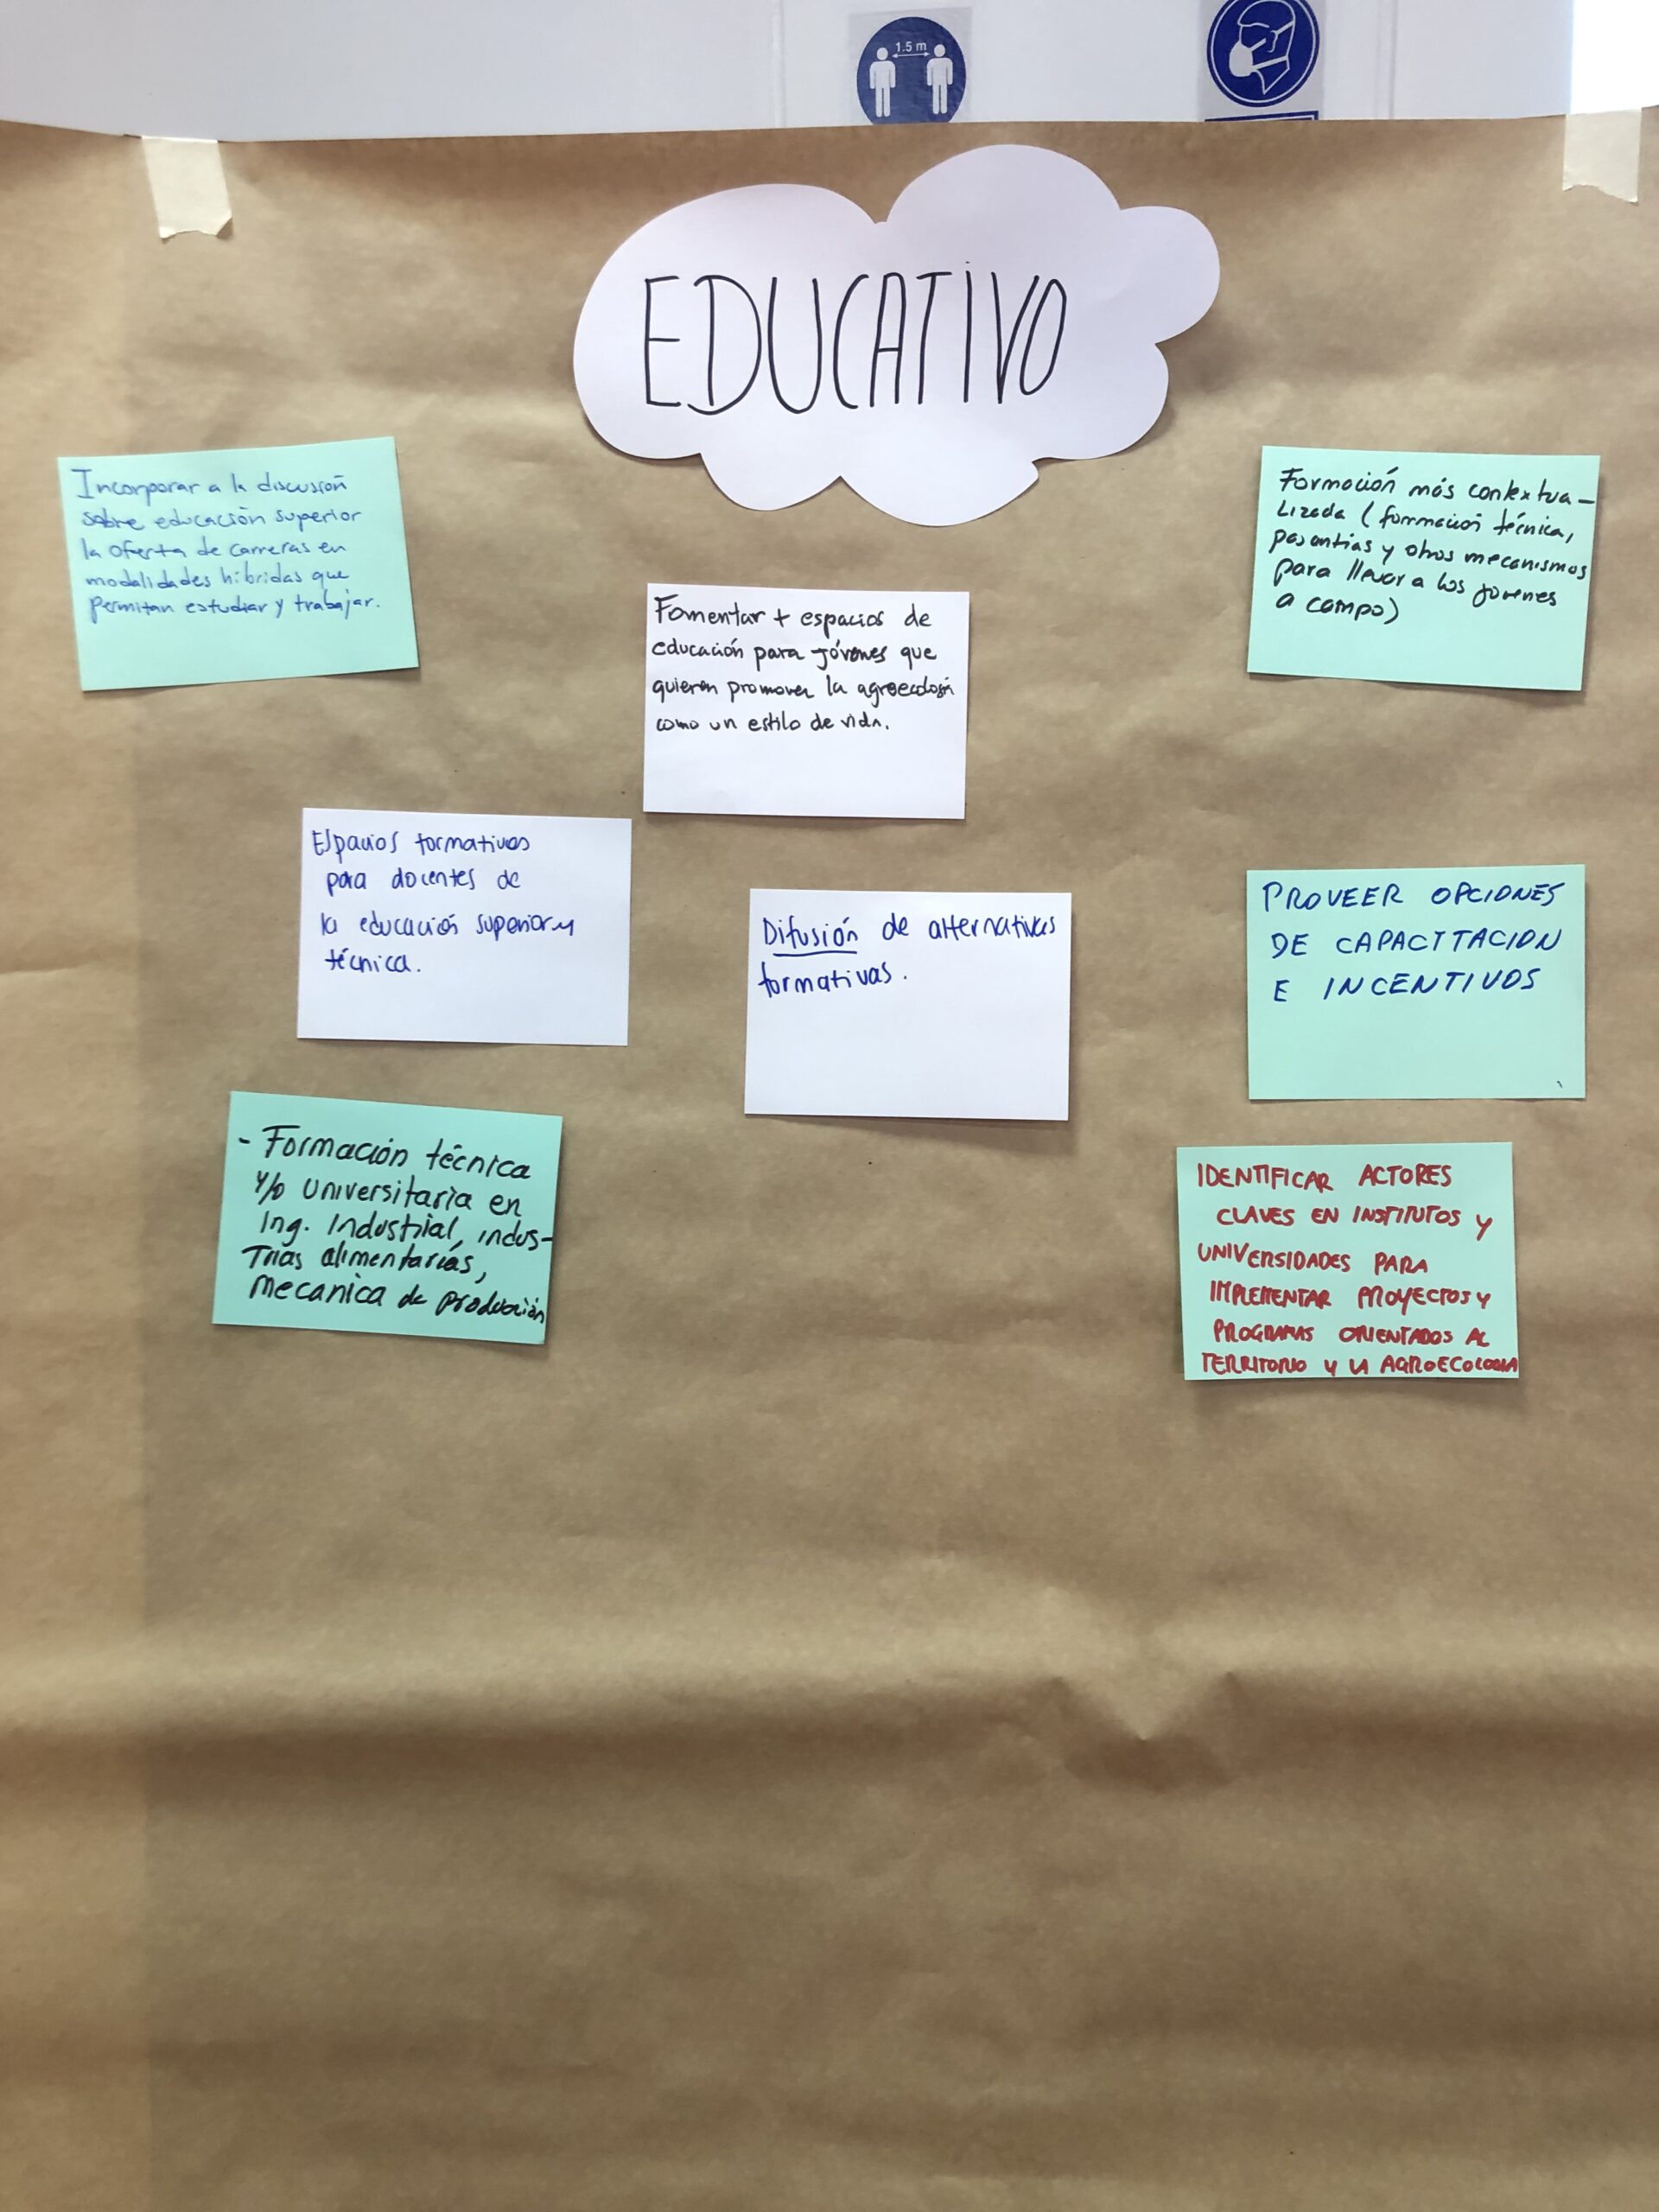 1.5 m
EDUCATIVO
Incorporar a la discusión
sobre educación superior
la oferta de carreras en
modalidades híbridas que
permitan estudiar y trabajar.
Formación más contextua-
lizada (formación técnica,
pasantías y otros mecanismos
para llevar a los jóvenes
a campo)
Fomentar + espacios de
educación para jóvenes que
quieren promover la agroecología
como un estilo de vida.
Espacios formativos
para docentes de
la educación superior y
técnica.
Difusión de alternativas
formativas.
PROVEER OPCIONES
DE CAPACITACION
E INCENTIVOS
- Formación técnica
y/o universitaria en
Ing. Industrial, indus-
trias alimentarías,
mecanica de producción
IDENTIFICAR ACTORES
CLAVES EN INSTITUTOS y
UNIVERSIDADES PARA
IMPLEMENTAR PROYECTOS y
PROGRAMAS ORIENTADOS AL
TERRITORIO y LA AGROECOLOGIA